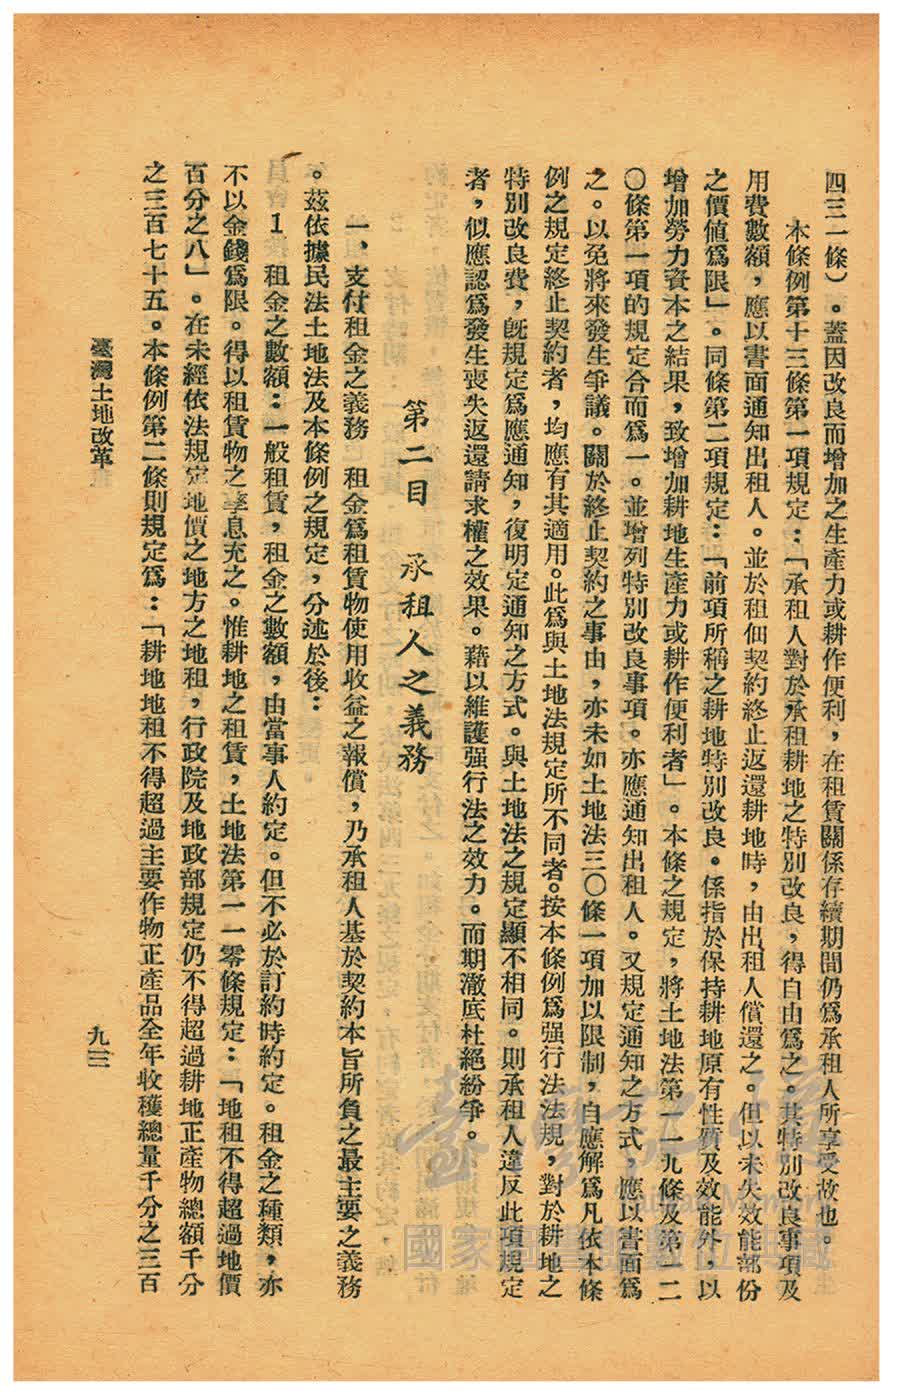 四三一條）。蓋因改良而增加之生產力或耕作便利，在租賃關係存續期間仍爲承租人所享受故也。
本條例第十三條第一項規定：「承租人對於承租耕地之特別改良，得自由爲之。其特別改良事項及
用費數額，應以書面通知出租人。並於租佃契約終止返還耕地時，由出租人償還之。但以未失效能部份
之價値爲限」。同條第二項規定：「前項所稱之耕地特別改良。係指於保持耕地原有性質及效能外，以
增加勞力資本之結果，致增加耕地生產力或耕作便利者」。本條之規定，將土地法第一一九條及第一二
〇條第一項的規定合而爲一。並增列特別改良事項。亦應通知出租人。又規定通知之方式，應以書面爲
之。以免將來發生爭議。關於終止契約之事由，亦未如土地法三〇條一項加以限制，自應解爲凡依本條
例之規定終止契約者，均應有其適用。此爲與土地法規定所不同者。按本條例爲强行法法規，對於耕地之
特別改良費，旣規定爲應通知，復明定通知之方式。與土地法之規定顯不相同。則承租人違反此項規定
者，似應認爲發生喪失返還請求權之效果。藉以維護强行法之效力。而期澈底杜絕紛爭。
第二目　承租人之義務
一、支付租金之義務　租金爲租賃物使用收益之報償，乃承租人基於契約本旨所負之最主要之義務
。茲依據民法土地法及本條例之規定，分述於後：
1　租金之數額：一般租賃，租金之數額，由當事人約定。但不必於訂約時約定。租金之種類，亦
不以金錢爲限。得以租賃物之孳息充之。惟耕地之租賃，土地法第一一零條規定：「地租不得超過地價
百分之八」。在未經依法規定地價之地方之地租，行政院及地政部規定仍不得超過耕地正產物總額千分
之三百七十五。本條例第二條則規定爲：「耕地地租不得超過主要作物正產品全年收穫總量千分之三百
臺灣土地改革
九三
國家圖書館數位典藏